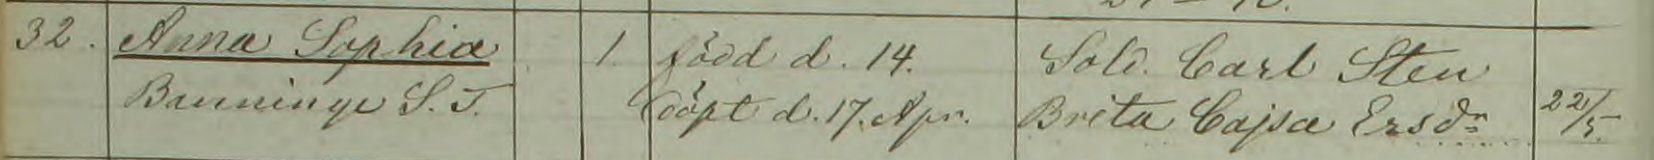 32. Anna Sophia 1. född d. 14. Sold. Carl Sten
Banninge S. T. döpt d. 17. Apr. Brita Cajsa Ersdr 22/5.